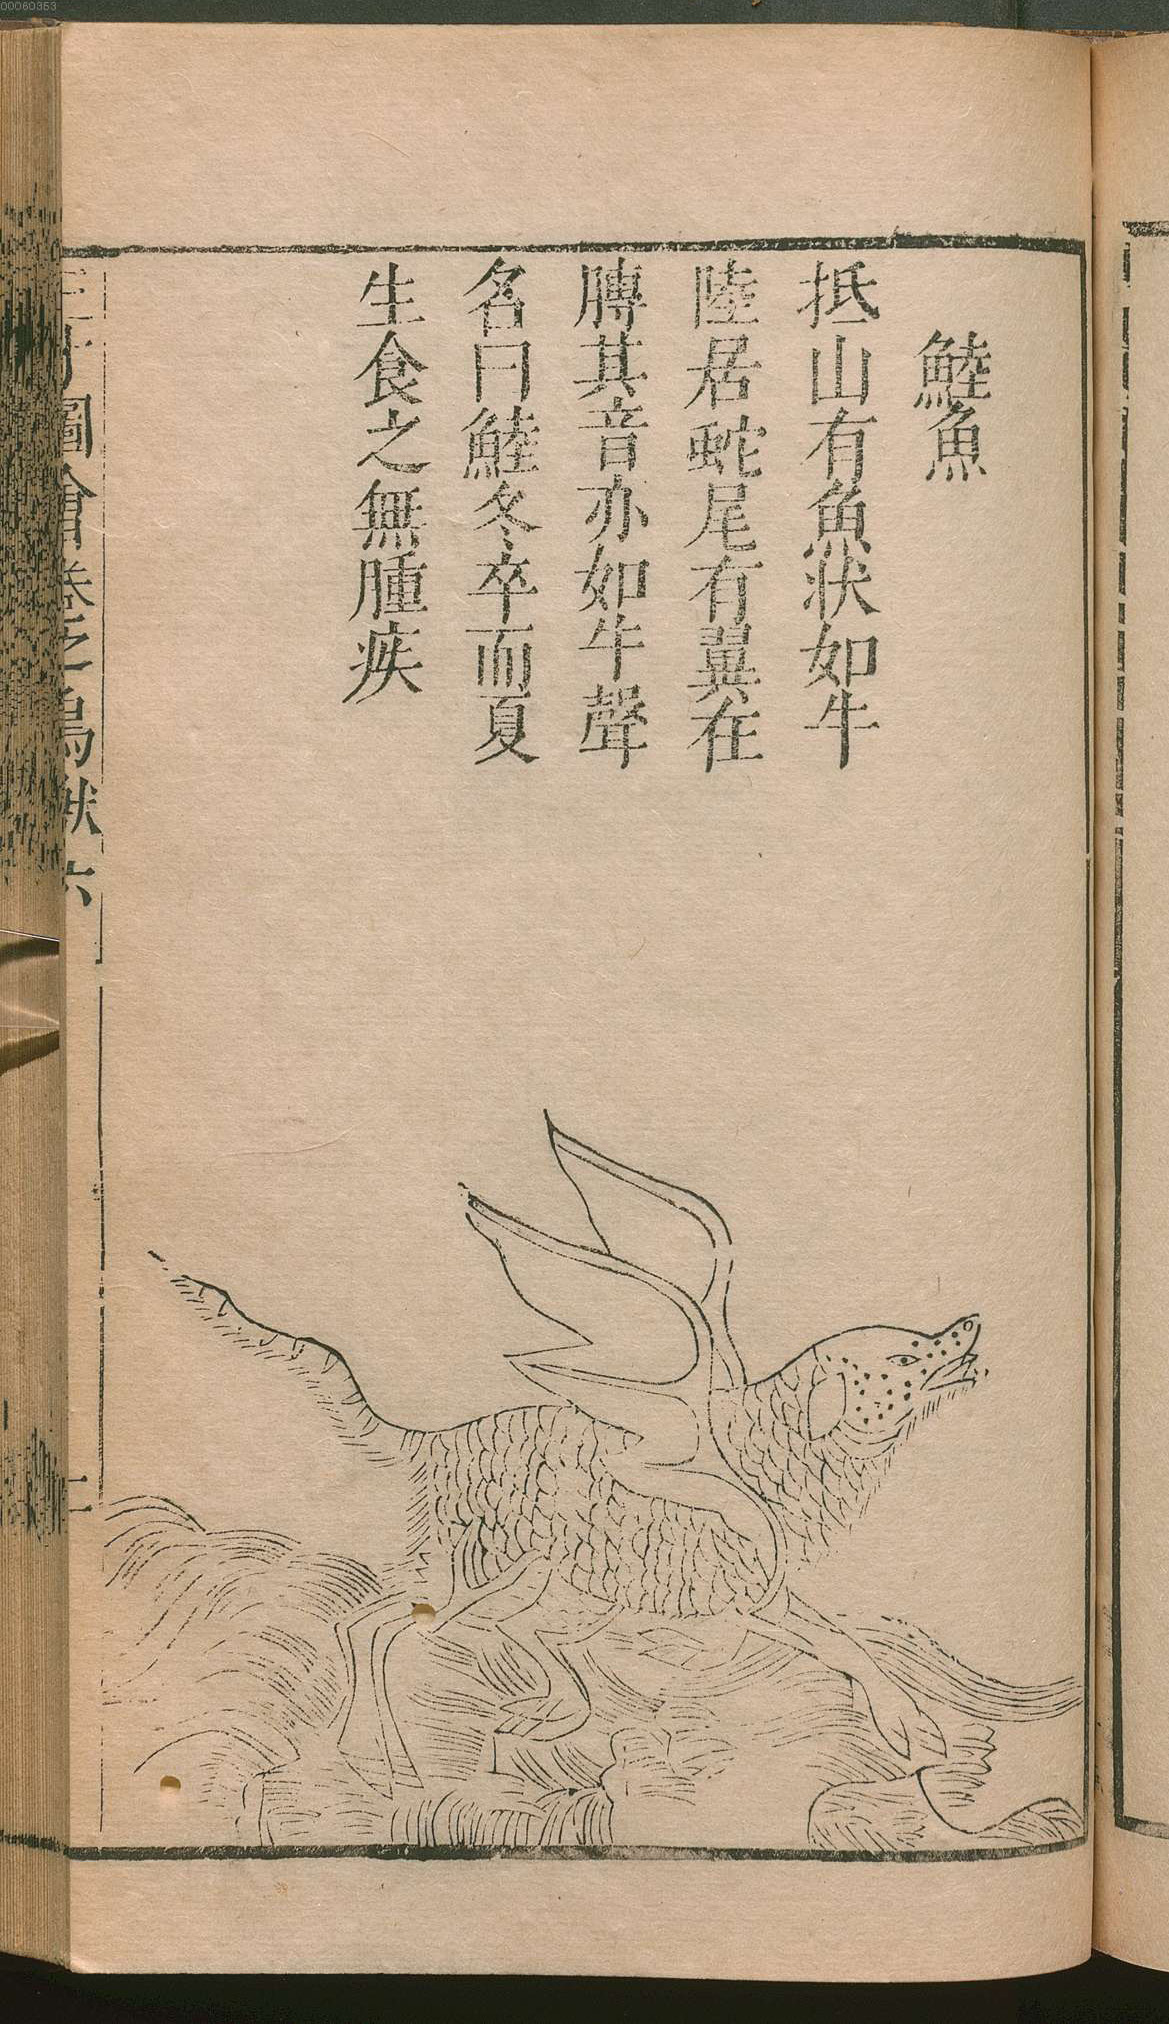 鯥魚
抵山有魚狀如牛
陸居蛇尾有翼在
膊其音亦如牛聲
名曰鯥冬卒而夏
生食之無腫疾
三才圖會卷之鳥獸六
二
00060353